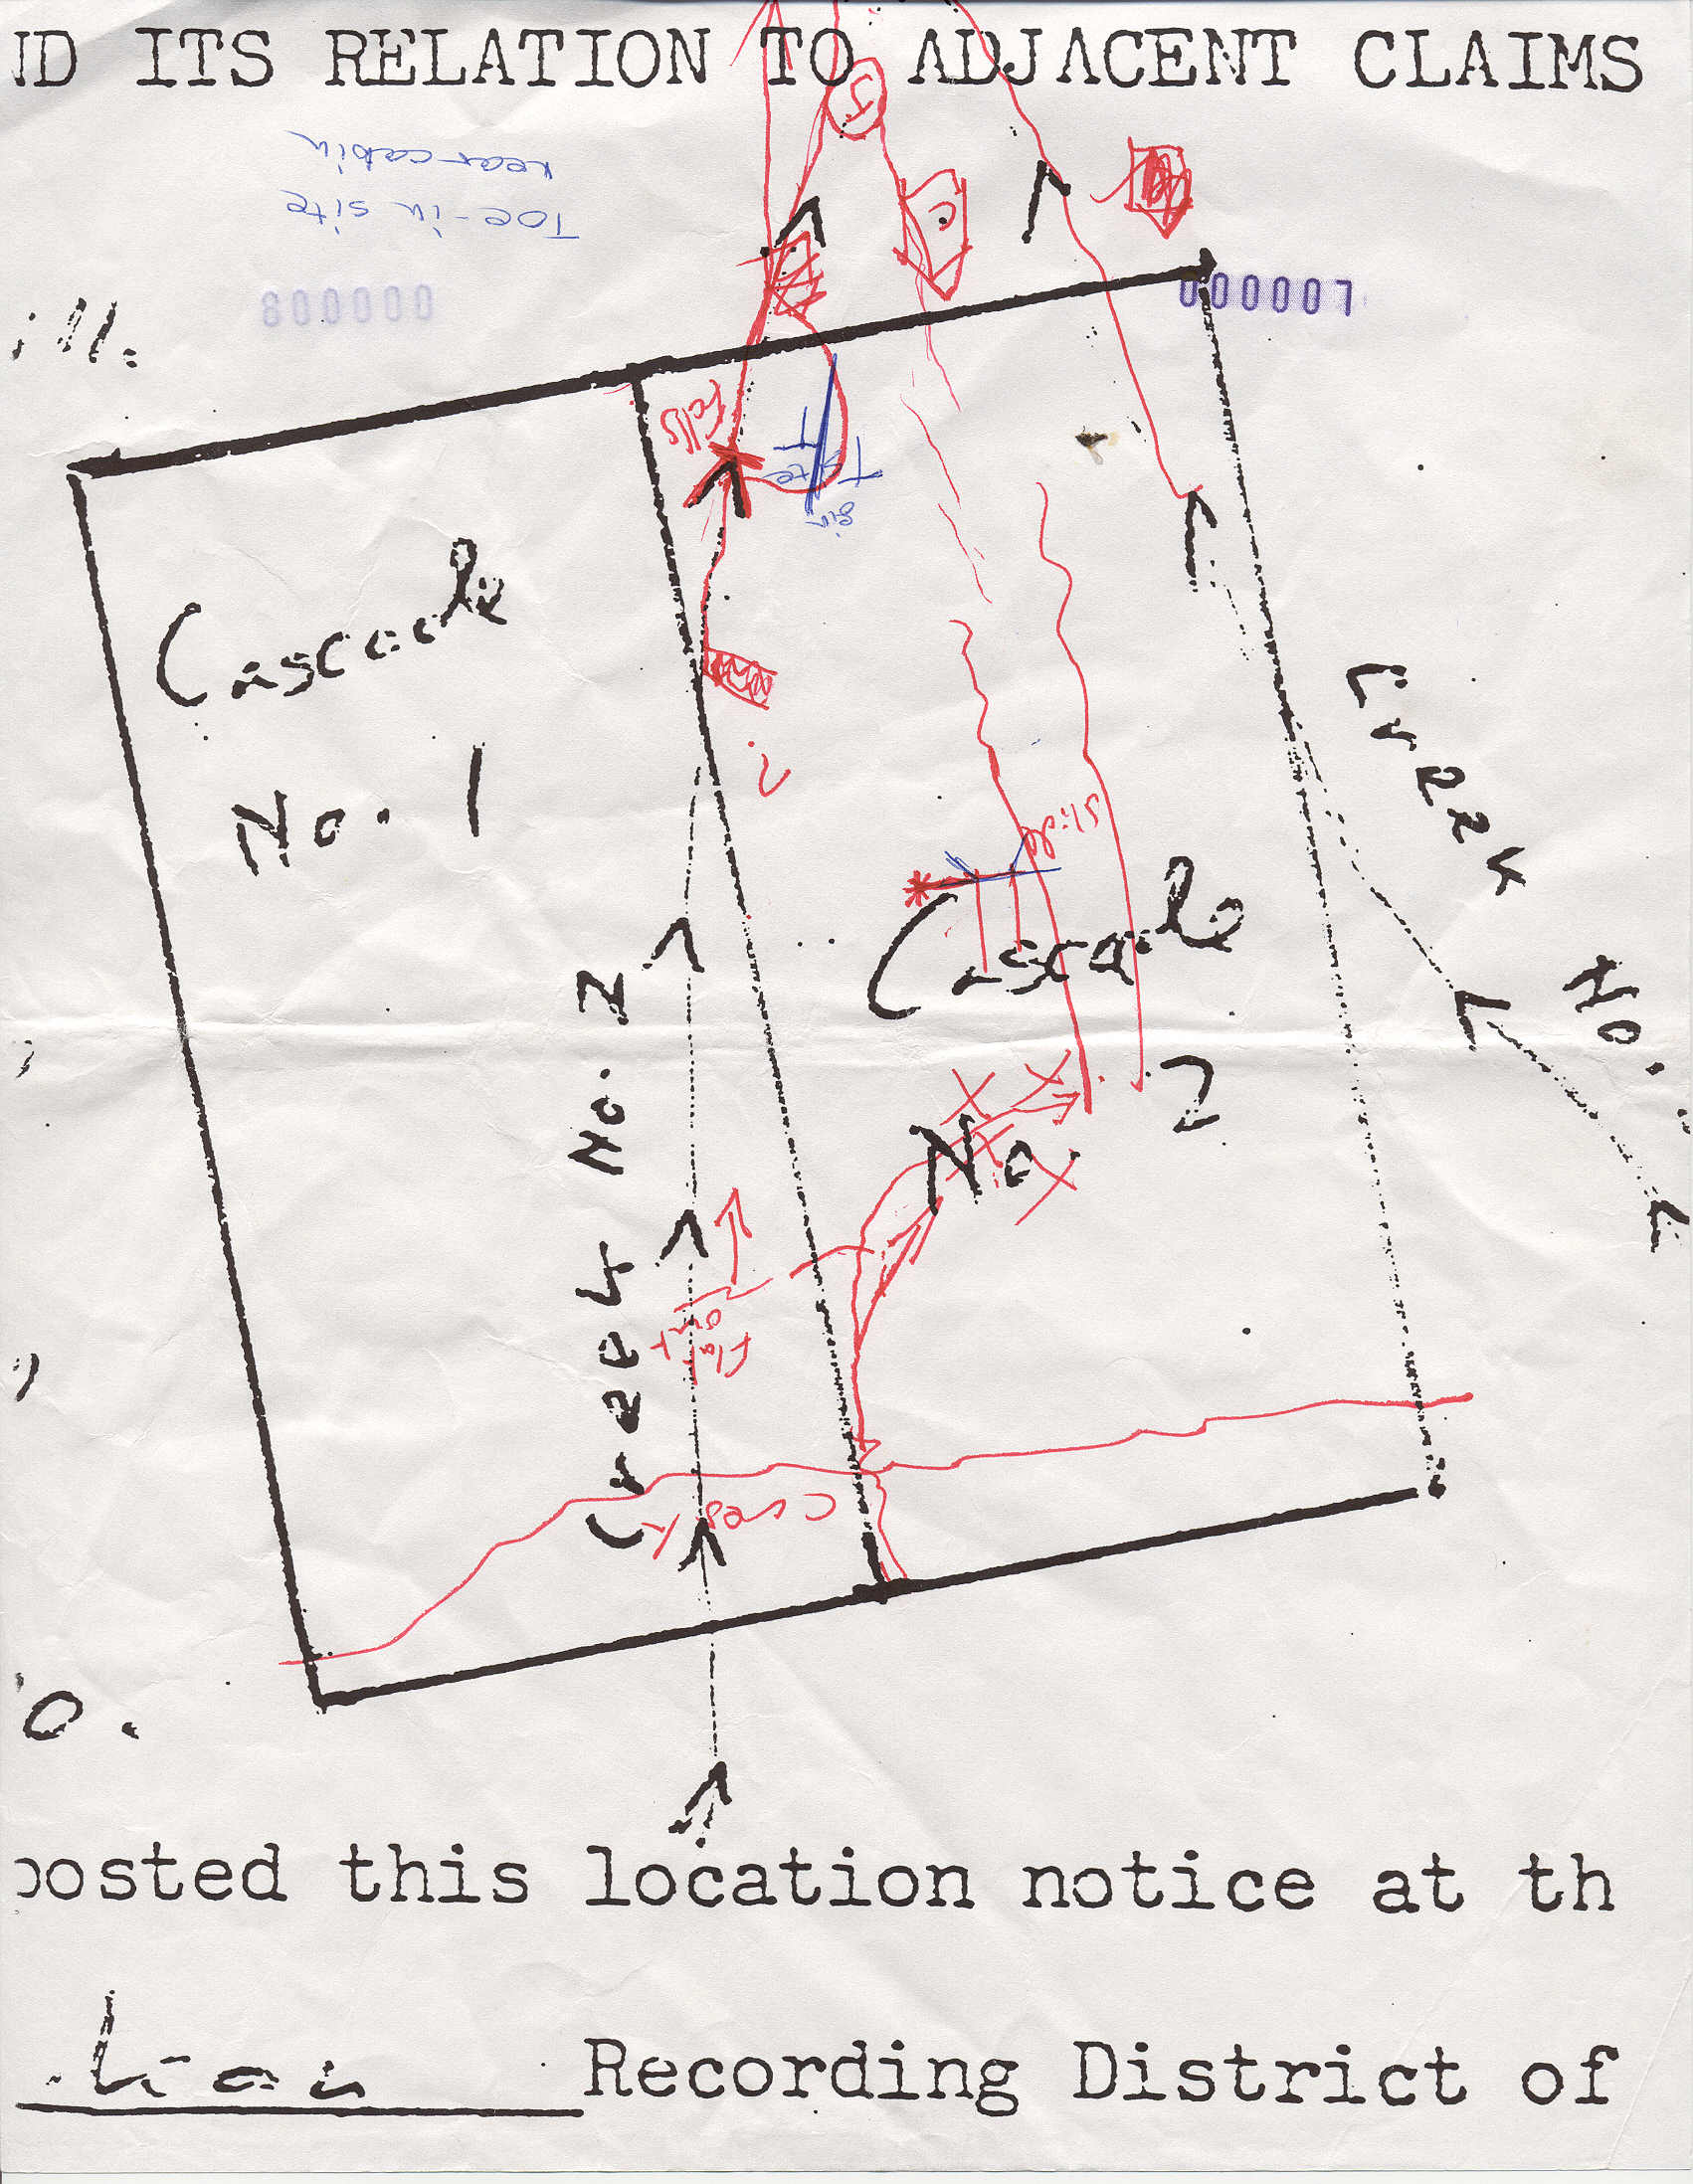 ND ITS RELATION TO ADJACENT CLAIMS
Toe-in site
near cabin
000008
000007
Falls
T site
gin
Cascade
No. 1
?
slide
Creek No.
Cascade
No. 2
Creek No. 2
Flat
out
Crest
posted this location notice at th
Recording District of